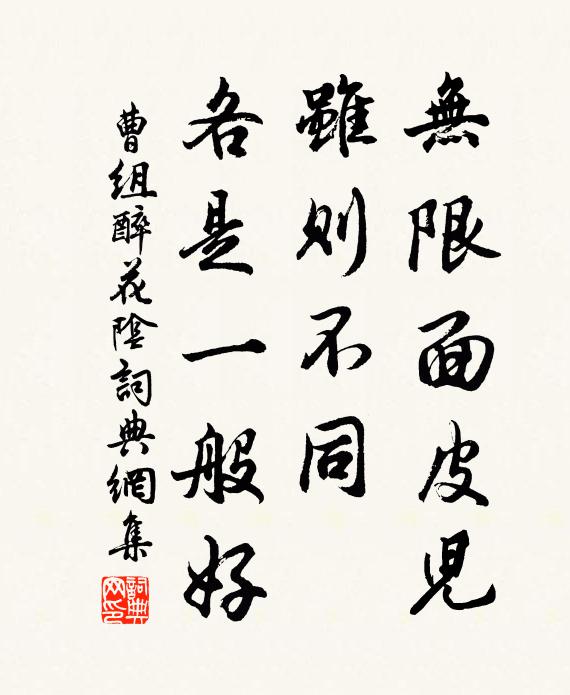 無限面皮児
雖則不同
各是一般好
曹組醉花陰詞典網集
詞典网印